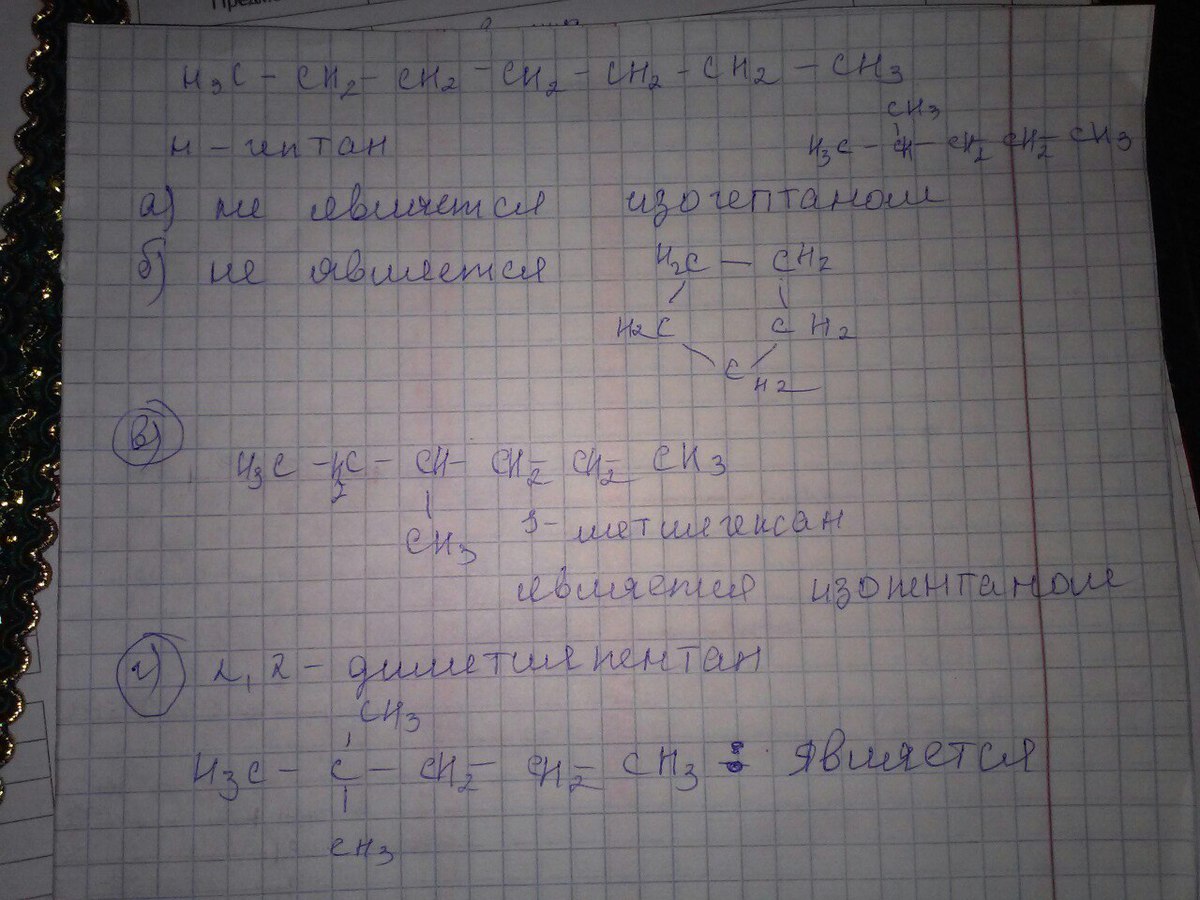 H3C - CH2 - CH2 - CH2 - CH2 - CH2 - CH3
CH3
н - гептан
H3C - CH - CH2 CH2 - CH3
а) не является изогептаном
б) не является
H2C - CH2
H2C CH2
CH2
в)
H3C - H2C - CH - CH2 - CH2 - CH3
CH3
3- метилгексан
является изопентаном
г) 2,2 - диметилпентан
CH3
H3C - C - CH2 - CH2 - CH3 является
CH3